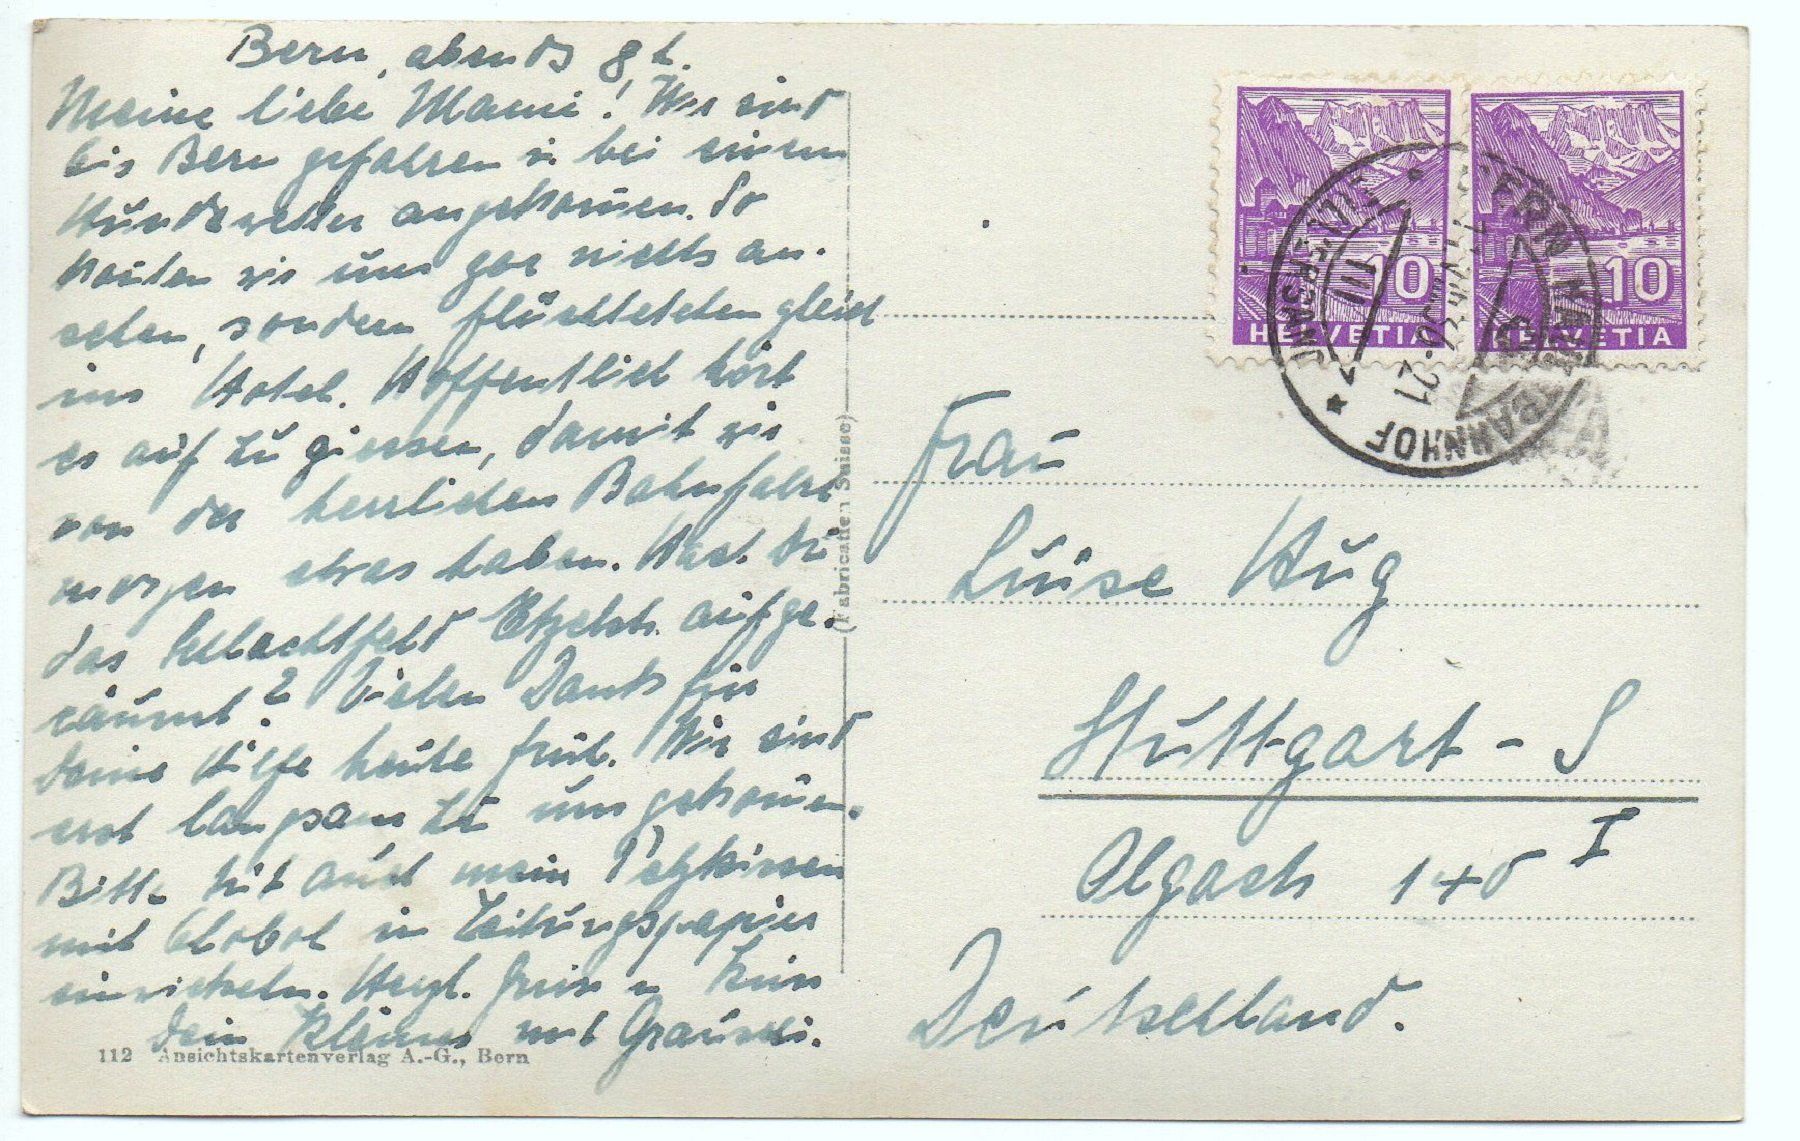 Bern, abends 8 h.
Meine liebe Mami! Wir sind
bis Bern gefahren u. bei einem
Hundewetter angekom̅en. So
kon̅ten wir uns gar nichts an-
sehen, sondern flüchteten gleich
ins Hotel. Hoffentlich hört
es auf zu giessen, damit wir
von der herrlichen Bahnfahrt
morgen etwas haben. Hast Du
das Schlachtfeld Etzelstr. aufge-
räumt? Vielen Dank für
Deine Hilfe heute früh. Wir sind
erst langsam zu uns gekom̅en.
Bitte tut auch mein Pelzkissen
mit Globol in Zeitungspapier
einwickeln. Herzl. Gruss u Kuss
Dein Kleines mit
112 Ansichtskartenverlag A.-G., Bern
(Fabrication Suisse)
10 HELVETIA
10 HELVETIA
BERN BAHNHOF
BRIEFVERSAND
Frau
Luise Hug
Stuttgart - S
Olgastr 140 I
Deutschland.